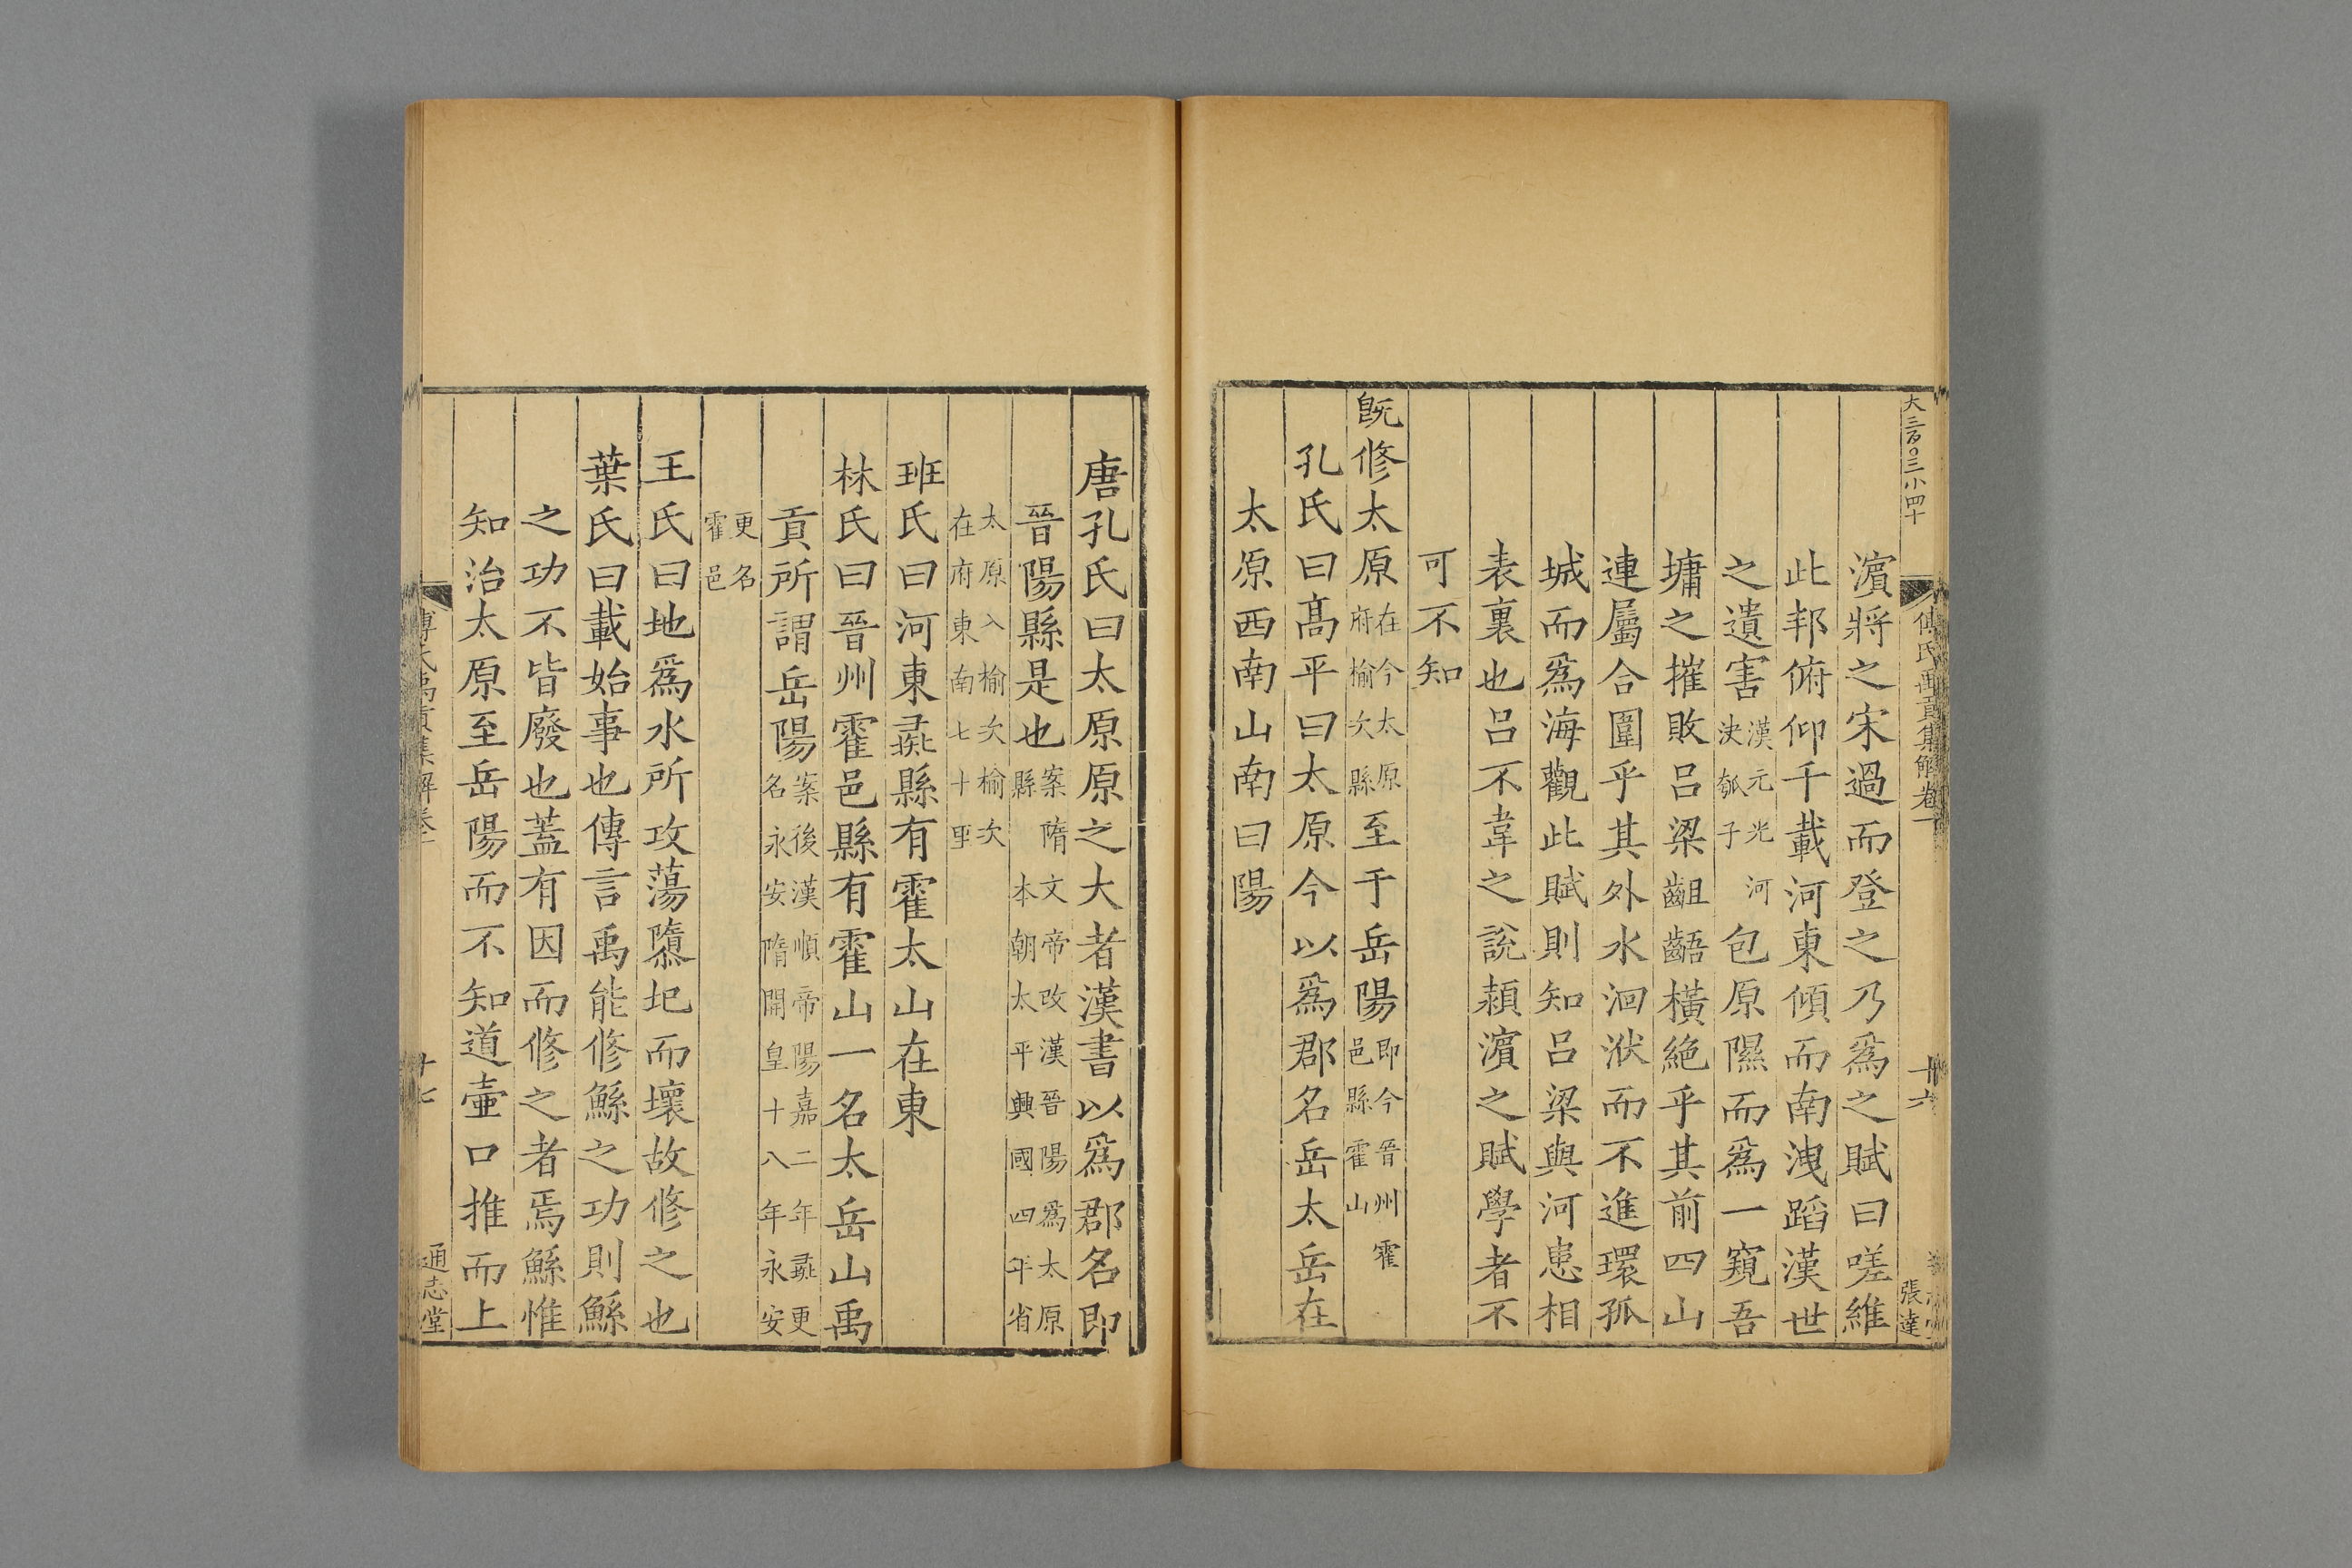 大三百〇三小四十
傅氏禹貢集解卷一
十六
張達
濵將之宋過而登之乃爲之賦曰嗟維
此邦俯仰千載河東傾而南洩蹈漢世
之遺害漢元光河決瓠子包原隰而爲一窺吾
墉之摧敗呂梁齟齬橫絶乎其前四山
連屬合圍乎其外水洄洑而不進環孤
城而爲海觀此賦則知呂梁與河患相
表裏也呂不韋之說頴濵之賦學者不
可不知
旣修太原在今太原府榆次縣至于岳陽即今晉州霍邑縣霍山
孔氏曰髙平曰太原今以爲郡名岳太岳在
太原西南山南曰陽
唐孔氏曰太原原之大者漢書以爲郡名即
晉陽縣是也案隋文帝改漢晉陽爲太原縣本朝太平興國四年省
太原入榆次榆次在府東南七十里
班氏曰河東彘縣有霍太山在東
林氏曰晉州霍邑縣有霍山一名太岳山禹
貢所謂岳陽案後漢順帝陽嘉二年彘更名永安隋開皇十八年永安
更名霍邑
王氏曰地爲水所攻蕩隳圯而壞故修之也
葉氏曰載始事也傳言禹能修鯀之功則鯀
之功不皆廢也蓋有因而修之者焉鯀惟
知治太原至岳陽而不知道壷口推而上
傅氏禹貢集解卷一
十七
通志堂